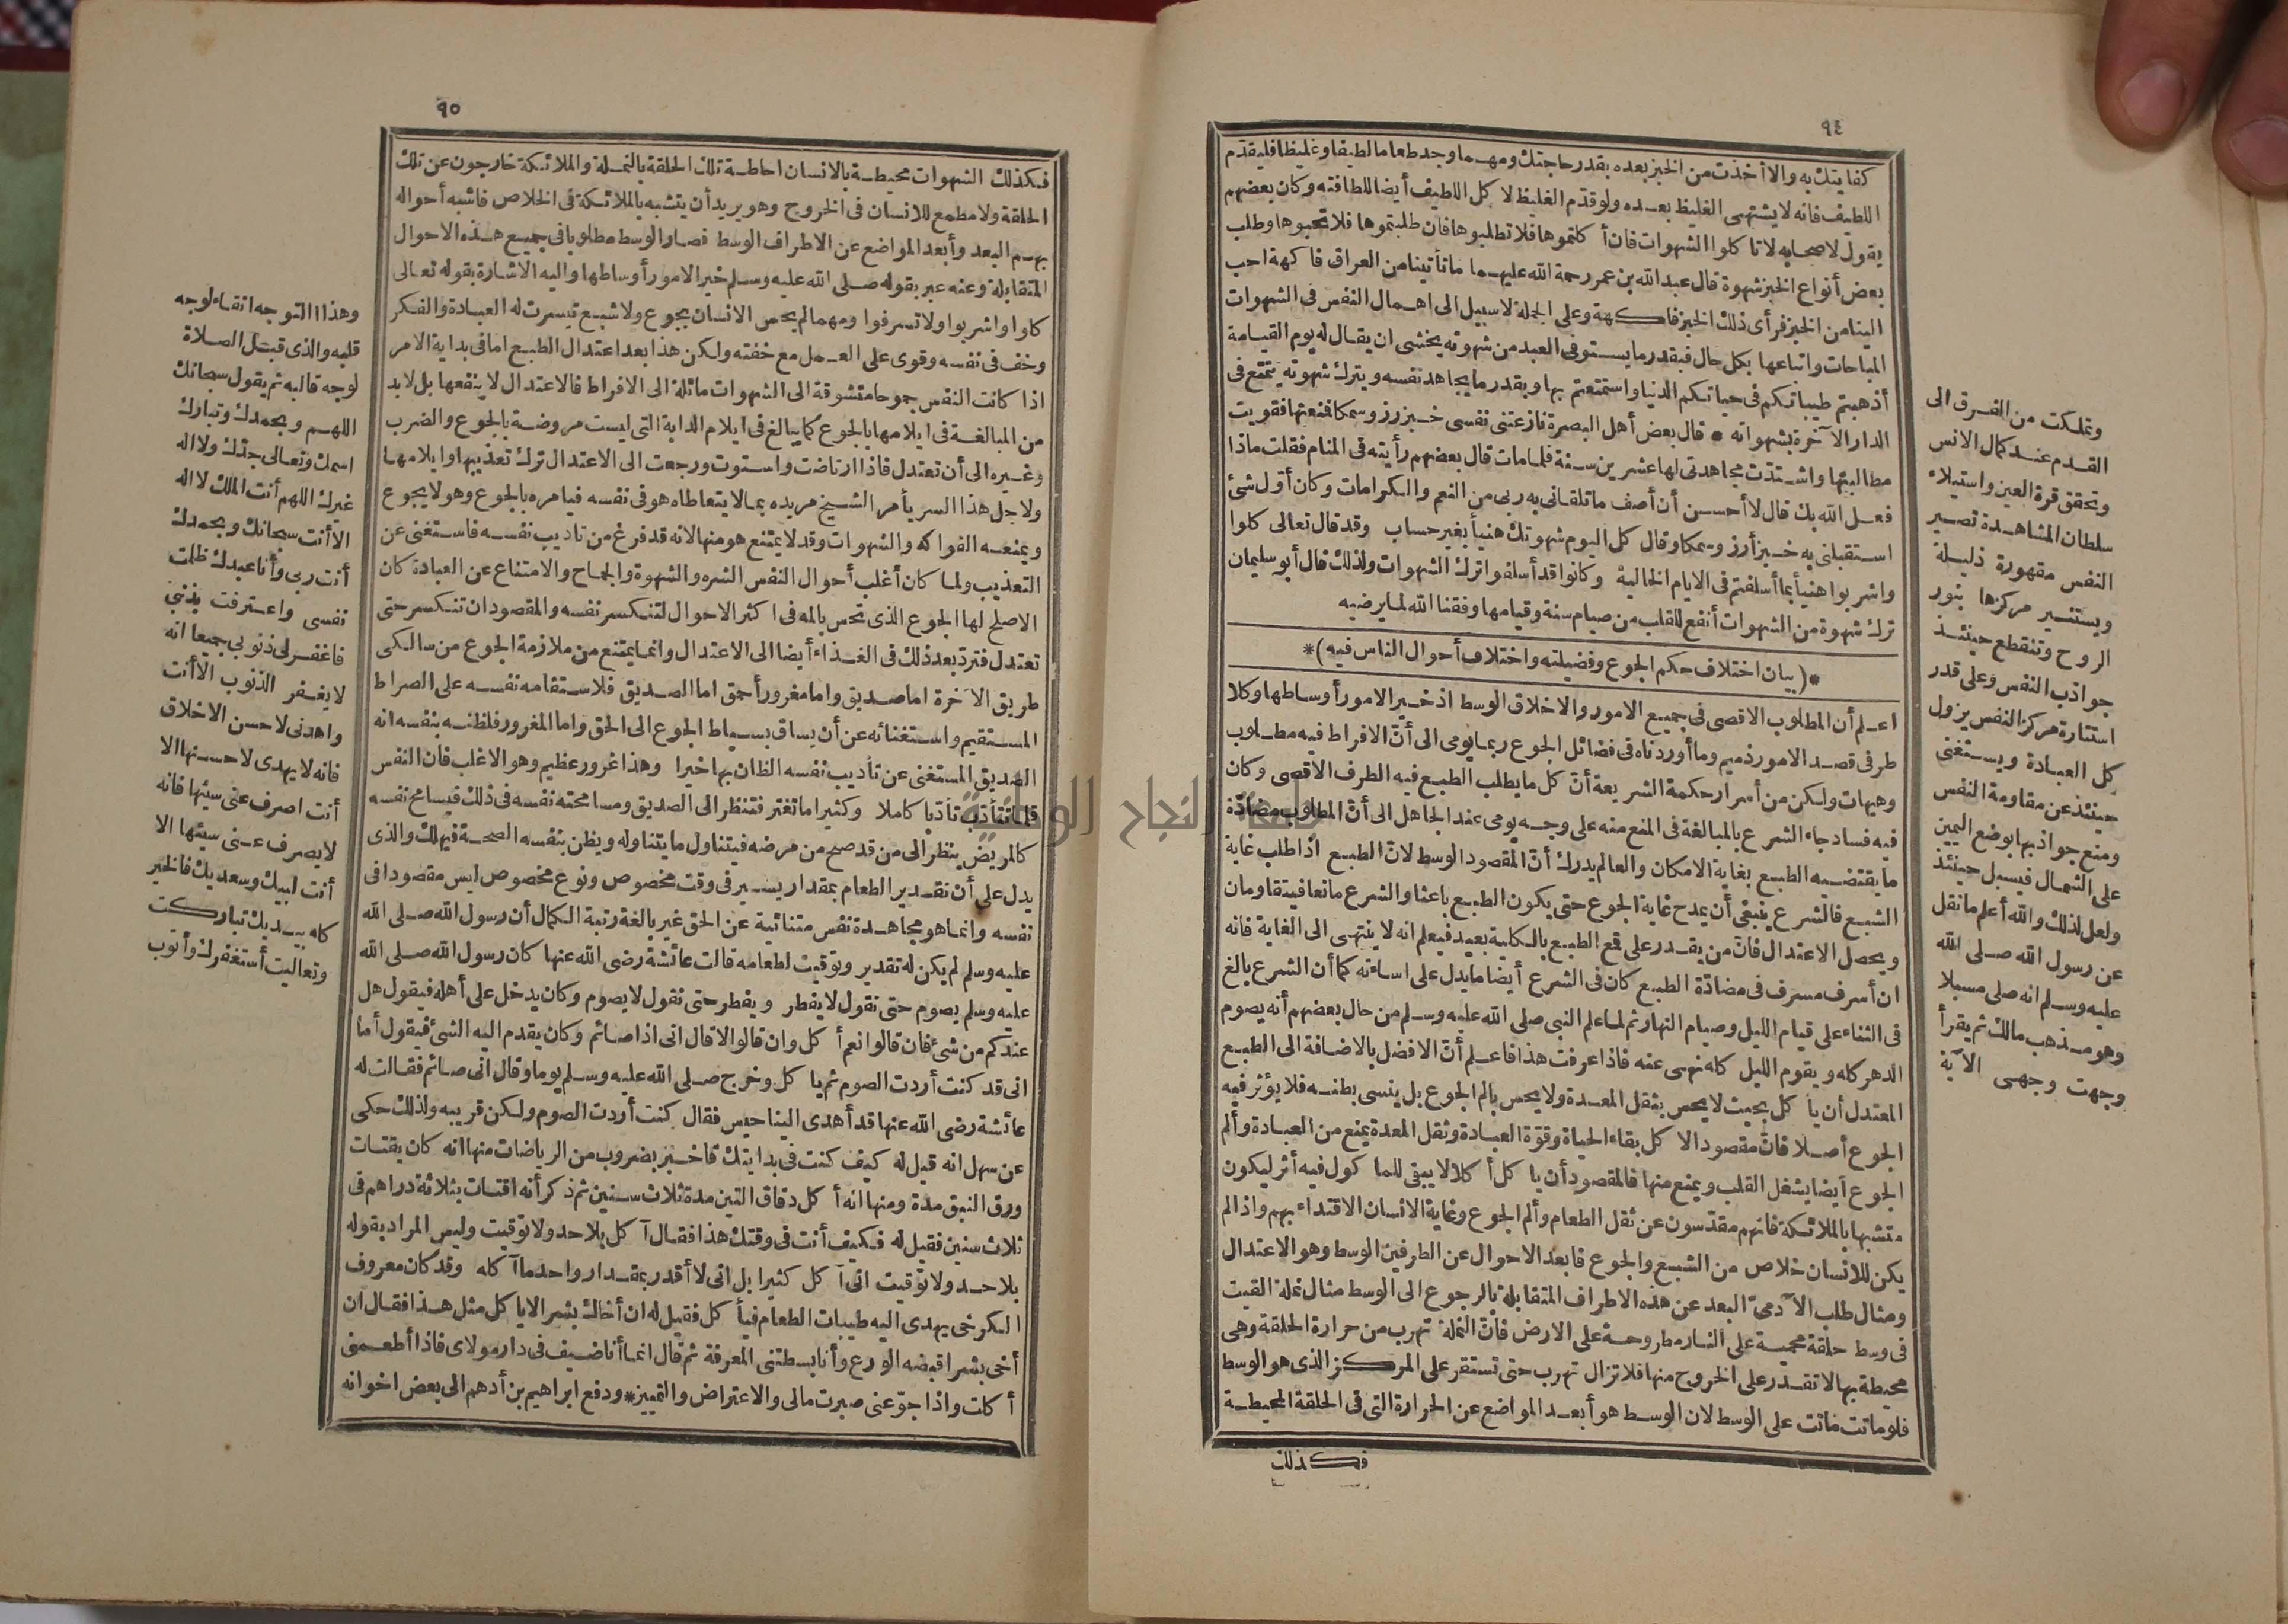 ٩٤
كفايتك به والا أخذت من الخبز بعده بقدر حاجتك ومهما وجد طعاما لطيفا وغليظا فليقدم
اللطيف فانه لا يشتهى الغليظ بعده ولو قدم الغليظ لا كل اللطيف أيضا للطافته وكان بعضهم
يقول لاصحابه لا تا كلوا الشهوات فان أ كلتموها فلا تطلبوها فان طلبتموها فلا تحبوها وطلب
بعض أنواع الخبز شهوة قال عبد الله بن عمر رحمة الله عليهما ما تأتينا من العراق فاكهة احب
الينا من الخبز فرأى ذلك الخبز فاكهة وعلى الجملة لا سبيل الى اهمال النفس فى الشهوات
المباحات واتباعها بكل حال فبقدر ما يستوفى العبد من شهوته يخشى ان يقال له يوم القيامة
أذهبتم طيباتكم فى حياتكم الدنيا واستمتعتم بها وبقدر ما يجاهد نفسه ويترك شهوته يتمتع فى
الدار الآخرة بشهواته * قال بعض أهل البصرة نازعتنى نفسى خبز رز وسمكا فمنعتها فقويت
مطالبتها واشتدت مجاهدتى لها عشرين سنة فلما مات قال بعضهم رأيته فى المنام فقلت ماذا
فعل الله بك قال لا أحسن أن أصف ما تلقانى به ربى من النعم والكرامات وكان أول شئ
استقبلنى به خبز أرز وسمكا وقال كل اليوم شهوتك هنيأ بغير حساب وقد قال تعالى كلوا
واشربوا هنيأ بما أسلفتم فى الايام الخالية وكانوا قد أسلفوا ترك الشهوات ولذلك قال أبو سليمان
ترك شهوة من الشهوات أنفع للقلب من صيام سنة وقيامها وفقنا الله لما يرضيه
*(بيان اختلاف حكم الجوع وفضيلته واختلاف أحوال الناس فيه)*
اعلم أن المطلوب الاقصى فى جميع الامور والاخلاق الوسط اذ خير الامور أوساطها وكلا
طرفى قصد الامور ذميم وما أوردناه فى فضائل الجوع ربما يومى الى أن الافراط فيه مطلوب
وهيهات ولكن من أسرار حكمة الشريعة أن كل ما يطلب الطبع فيه الطرف الاقصى وكان
فيه فساد جاء الشرع بالمبالغة فى المنع منه على وجه يومى عند الجاهل الى أن المطلوب مضادة
ما يقتضيه الطبع بغاية الامكان والعالم يدرك أن المقصود الوسط لان الطبع اذا طلب غاية
الشبع فالشرع ينبغى أن يمدح غاية الجوع حتى يكون الطبع باعثا والشرع مانعا فيتقاومان
ويحصل الاعتدال فان من يقدر على قمع الطبع بالكلية بعيد فيعلم انه لا ينتهى الى الغاية فانه
ان أسرف مسرف فى مضادة الطبع كان فى الشرع أيضا ما يدل على اساءته كما أن الشرع بالغ
فى الثناء على قيام الليل وصيام النهار ثم لما علم النبى صلى الله عليه وسلم من حال بعضهم أنه يصوم
الدهر كله ويقوم الليل كله نهى عنه فاذا عرفت هذا فاعلم أن الافضل بالاضافة الى الطبع
المعتدل أن يأ كل بحيث لا يحس بثقل المعدة ولا يحس بالم الجوع بل ينسى بطنه فلا يؤثر فيه
الجوع أصلا فان مقصود الا كل بقاء الحياة وقوة العبادة وثقل المعدة يمنع من العبادة وألم
الجوع أيضا يشغل القلب ويمنع منها فالمقصود أن يا كل أ كلا لا يبقى للما كول فيه أثر ليكون
متشبها بالملائكة فانهم مقدسون عن ثقل الطعام وألم الجوع وغاية الانسان الاقتداء بهم واذا لم
يكن للانسان خلاص من الشبع والجوع فابعد الاحوال عن الطرفين الوسط وهو الاعتدال
ومثال طلب الآدمى البعد عن هذه الاطراف المتقابلة بالرجوع الى الوسط مثال نملة القيت
فى وسط حلقة محمية على النار مطروحة على الارض فان النملة تهرب من حرارة الحلقة وهى
محيطة بها لا تقدر على الخروج منها فلا تزال تهرب حتى تستقر على المركز الذى هو الوسط
فلو ماتت ماتت على الوسط لان الوسط هو أبعد المواضع عن الحرارة التى فى الحلقة المحيطة
فكذلك
وتملكت من الفرق الى
القدم عند كمال الانس
وتحقق قرة العين واستيلاء
سلطان المشاهدة تصير
النفس مقهورة ذليلة
ويستنير مركزها بنور
الروح وتنقطع حينئذ
جواذب النفس وعلى قدر
استنارة مركز النفس يزول
كل العبادة ويستغنى
حينئذ عن مقاومة النفس
ومنع جواذبها بوضع اليمين
على الشمال فيسبل حينئذ
ولعل لذلك والله أعلم ما نقل
عن رسول الله صلى الله
عليه وسلم انه صلى مسبلا
وهو مذهب مالك ثم يقرأ
وجهت وجهى الآية
٩٥
فكذلك الشهوات محيطة بالانسان احاطة تلك الحلقة بالنملة والملائكة خارجون عن تلك
الحلقة ولا مطمع للانسان فى الخروج وهو يريد أن يتشبه بالملائكة فى الخلاص فاشبه أحواله
بهم البعد وأبعد المواضع عن الاطراف الوسط فصار الوسط مطلوبا فى جميع هذه الاحوال
المتقابلة وعنه عبر بقوله صلى الله عليه وسلم خير الامور أوساطها واليه الاشارة بقوله تعالى
كلوا واشربوا ولا تسرفوا ومهما لم يحس الانسان بجوع ولا شبع تيسرت له العبادة والفكر
وخف فى نفسه وقوى على العمل مع خفته ولكن هذا بعد اعتدال الطبع اما فى بداية الامر
اذا كانت النفس جموحا متشوقة الى الشهوات مائلة الى الافراط فالاعتدال لا ينفعها بل لا بد
من المبالغة فى ايلامها بالجوع كما يبالغ فى ايلام الدابة التى ليست مروضة بالجوع والضرب
وغيره الى أن تعتدل فاذا ارتاضت واستوت ورجعت الى الاعتدال ترك تعذيبها وايلامها
ولاجل هذا السر يأمر الشيخ مريده بما لا يتعاطاه هو فى نفسه فيامره بالجوع وهو لا يجوع
ويمنعه الفواكه والشهوات وقد لا يمتنع هو منها لانه قد فرغ من تاديب نفسه فاستغنى عن
التعذيب ولما كان أغلب أحوال النفس الشره والشهوة والجماح والامتناع عن العبادة كان
الاصلح لها الجوع الذى تحس بالمه فى اكثر الاحوال لتنكسر نفسه والمقصود ان تنكسر حتى
تعتدل فترد بعد ذلك فى الغذاء أيضا الى الاعتدال وانما يمتنع من ملازمة الجوع من سالكى
طريق الآخرة اما صديق واما مغرور أحمق اما الصديق فلاستقامه نفسه على الصراط
المستقيم واستغنائه عن أن يساق بسياط الجوع الى الحق واما المغرور فلظنه بنفسه انه
الصديق المستغنى عن تأديب نفسه الظان بها خيرا وهذا غرور عظيم وهو الاغلب فان النفس
قلما تتأدب تأدبا كاملا وكثيرا ما تغتر فتنظر الى الصديق ومسامحته نفسه فى ذلك فيسامح نفسه
كالمريض ينظر الى من قد صح من مرضه فيتناول ما يتناوله ويظن بنفسه الصحة فيهلك والذى
يدل على أن تقدير الطعام بمقدار يسير فى وقت مخصوص ونوع مخصوص ليس مقصودا فى
نفسه وانما هو مجاهدة نفس متنائية عن الحق غير بالغة رتبة الكمال أن رسول الله صلى الله
عليه وسلم لم يكن له تقدير وتوقيت لطعامه قالت عائشة رضى الله عنها كان رسول الله صلى الله
عليه وسلم يصوم حتى نقول لا يفطر ويفطر حتى نقول لا يصوم وكان يدخل على أهله فيقول هل
عندكم من شئ فان قالوا نعم أ كل وان قالوا لا قال انى اذا صائم وكان يقدم اليه الشئ فيقول أما
انى قد كنت أردت الصوم ثم يا كل وخرج صلى الله عليه وسلم يوما وقال انى صائم فقالت له
عائشة رضى الله عنها قد أهدى الينا حيس فقال كنت أردت الصوم ولكن قربيه ولذلك حكى
عن سهل انه قيل له كيف كنت فى بدايتك فاخبر بضروب من الرياضات منها انه كان يقتات
ورق النبق مدة ومنها انه أ كل دقاق التين مدة ثلاث سنين ثم ذكر أنه اقتات بثلاثة دراهم فى
ثلاث سنين فقيل له فكيف أنت فى وقتك هذا فقال آ كل بلا حد ولا توقيت وليس المراد بقوله
بلا حد ولا توقيت انى آ كل كثيرا بل انى لا أقدر بمقدار واحد ما آكله وقد كان معروف
الكرخى يهدى اليه طيبات الطعام فيأ كل فقيل له ان أخاك بشر الا يا كل مثل هذا فقال ان
أخى بشرا قبضه الورع وأنا بسطتنى المعرفة ثم قال انما أنا ضيف فى دار مولاى فاذا أطعمنى
أ كلت واذا جوعنى صبرت مالى والاعتراض والتمييز * ودفع ابراهيم بن أدهم الى بعض اخوانه
وهذا التوجه ابقاء لوجه
قلبه والذى قبل الصلاة
لوجه قالبه ثم يقول سبحانك
اللهم وبحمدك وتبارك
اسمك وتعالى جدك ولا اله
غيرك اللهم أنت الملك لا اله
الا أنت سبحانك وبحمدك
أنت ربى وأنا عبدك ظلمت
نفسى واعترفت بذنبى
فاغفر لى ذنوبى جميعا انه
لا يغفر الذنوب الا أنت
واهدنى لاحسن الاخلاق
فانه لا يهدى لاحسنها الا
أنت اصرف عنى سيئها فانه
لا يصرف عنى سيئها الا
أنت لبيك وسعديك فالخير
كله بيديك تباركت
وتعاليت أستغفرك وأتوب
جامعة النجاح الوطنية